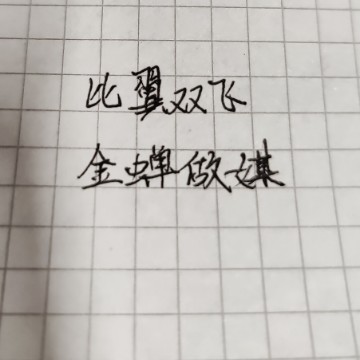 比翼双飞
金蝉做媒